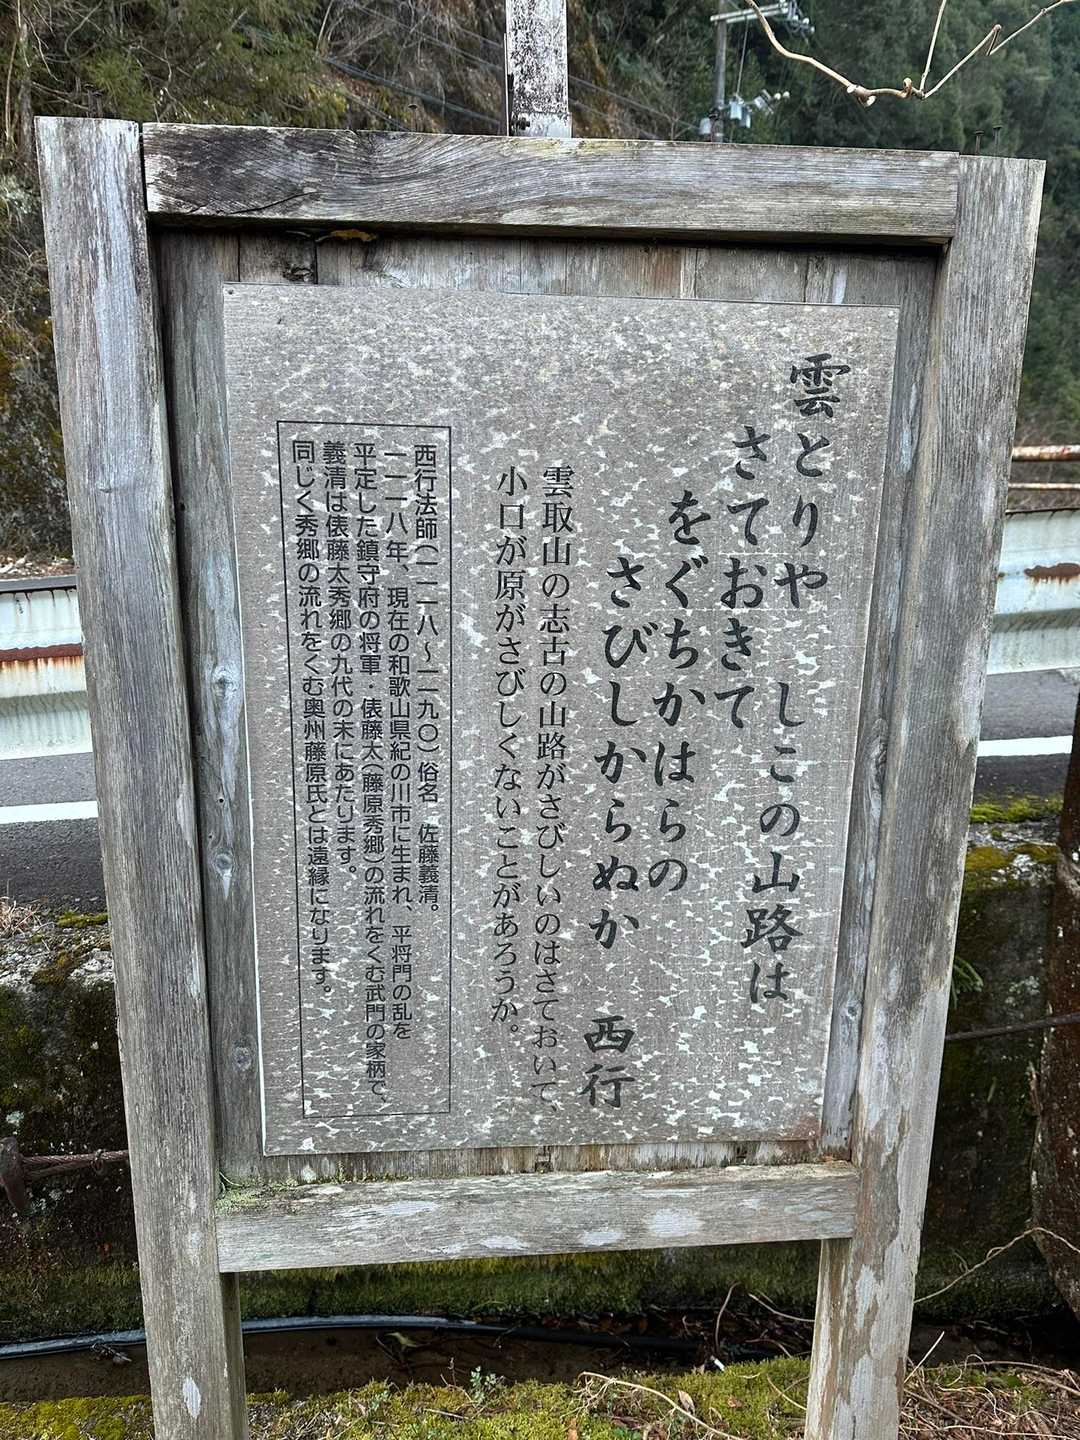 雲とりや しこの山路は
さておきて
をぐちかはらの
さびしからぬか 西行
雲取山の志古の山路がさびしいのはさておいて、
小口が原がさびしくないことがあろうか。
西行法師(一一一八〜一一九〇)俗名 佐藤義清。
一一一八年、現在の和歌山県紀の川市に生まれ、平将門の乱を
平定した鎮守府の将軍・俵藤太(藤原秀郷)の流れをくむ武門の家柄で、
義清は俵藤太秀郷の九代の末にあたります。
同じく秀郷の流れをくむ奥州藤原氏とは遠縁になります。